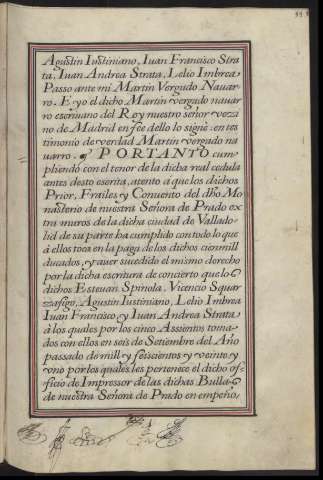 Agustin Iustiniano, Iuan Francisco Stra
ta, Iuan Andrea Strata, Lelio Imbrea
Passo ante mi Martin Vergudo Nauar
ro. E yo el dicho Martin vergudo nauar
ro escriuano del Rey nuestro señor vezi
no de Madrid en fee dello lo signe. en tes
timonio de verdad Martin vergudo na
uarro. PORTANTO cum
pliendo con el tenor de la dicha real cedula
antes desto escrita, atento á que los dichos
Prior, Frailes, y Conuento del dho Mo
nasterio de nuestra Señora de Prado ex
tra muros de la dicha ciudad de Vallado
lid de su parte ha cumplido con todo lo que
á ellos toca en la paga de los dichos
ducados, y auer sucedido el mismo derecho
por la dicha escritura de concierto que los
dichos Esteuan Spinola, Vicencio Squar
zafigo, Agustin Iustiniano, Lelio Imbrea
Iuan Francisco, y Iuan Andrea Strata
á los quales por los cinco Assientos toma
dos con ellos en seis de Setiembre del Año
passado de mill y seiscientos y veinte y
vno por los quales les pertenece el dicho of
ficio de Impressor de las dichas Bullas
de nuestra Señora de Prado en empeño,